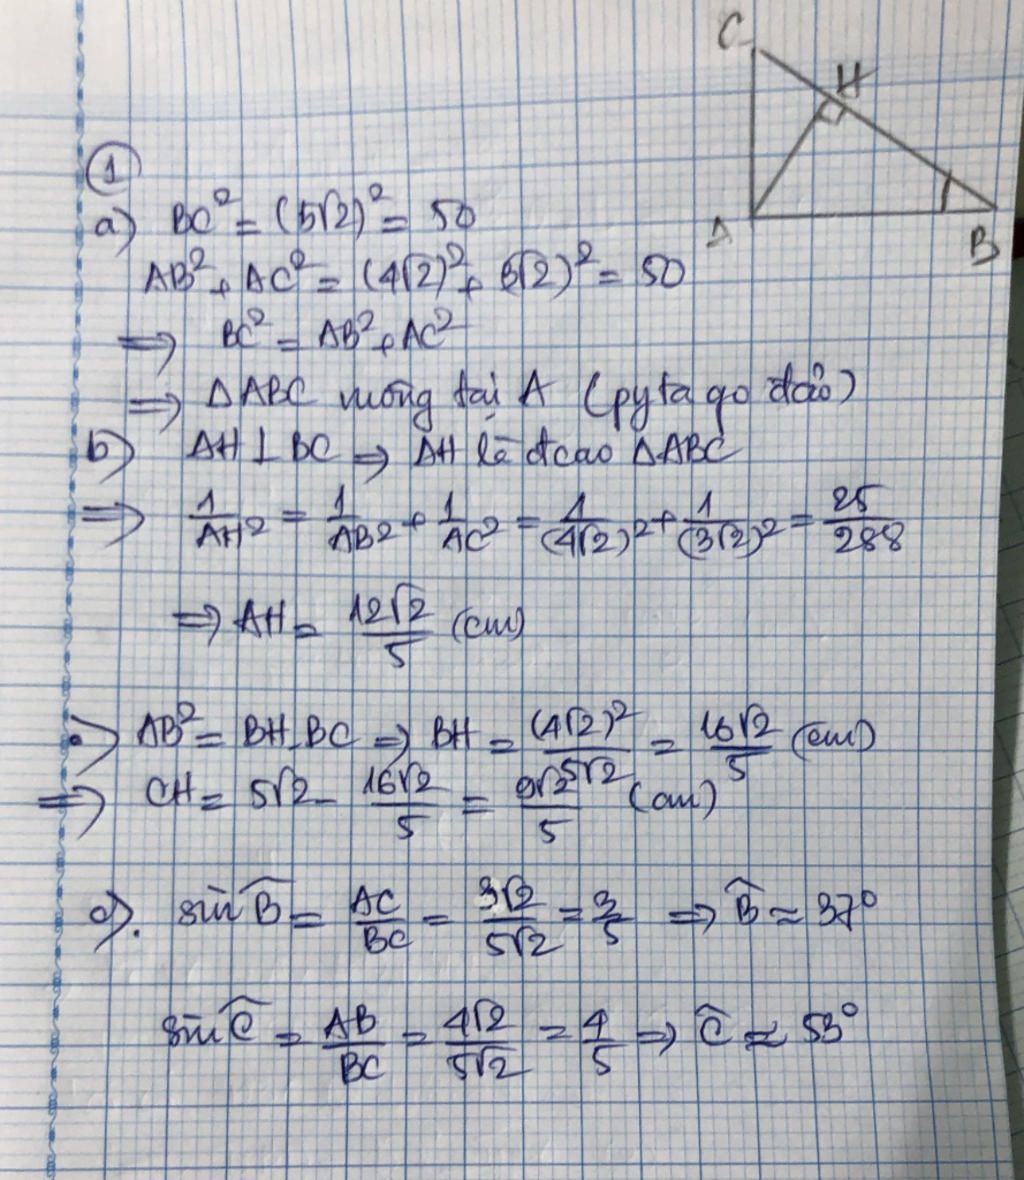 C
H
A
B
①
a) BC² = (5√2)² = 50
AB² + AC² = (4√2)² + (3√2)² = 50
⇒ BC² = AB² + AC²
⇒ ΔABC vuông tại A (pytago đảo)
b) AH ⊥ BC ⇒ AH là đcao ΔABC
⇒ 1/AH² = 1/AB² + 1/AC² = 1/(4√2)² + 1/(3√2)² = 25/288
⇒ AH = 12√2/5 (cm)
•) AB² = BH.BC ⇒ BH = (4√2)²/5√2 = 16√2/5 (cm)
⇒ CH = 5√2 - 16√2/5 = 9√2/5 (cm)
c). sin B̂ = AC/BC = 3√2/5√2 = 3/5 ⇒ B̂ ≈ 37°
sin Ĉ = AB/BC = 4√2/5√2 = 4/5 ⇒ Ĉ ≈ 53°